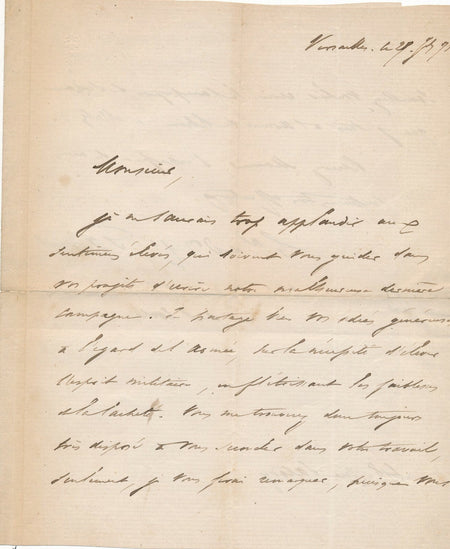 Versailles. le 29.
Monsieur,
je ne saurais trop applaudir aux
sentimens élevés, qui doivent vous guider dans
vos projets d'écrire notre malheureuse dernière
campagne. Je partage bien vos idées généreuses
à l'égard de l'armée, sur la nécessité d'élever
l'esprit militaire, en flétrissant les faiblesses
et la lacheté. Vous me trouverez donc toujours
très disposé à vous seconder dans votre travail,
seulement, je vous ferai remarquer, puisque vous